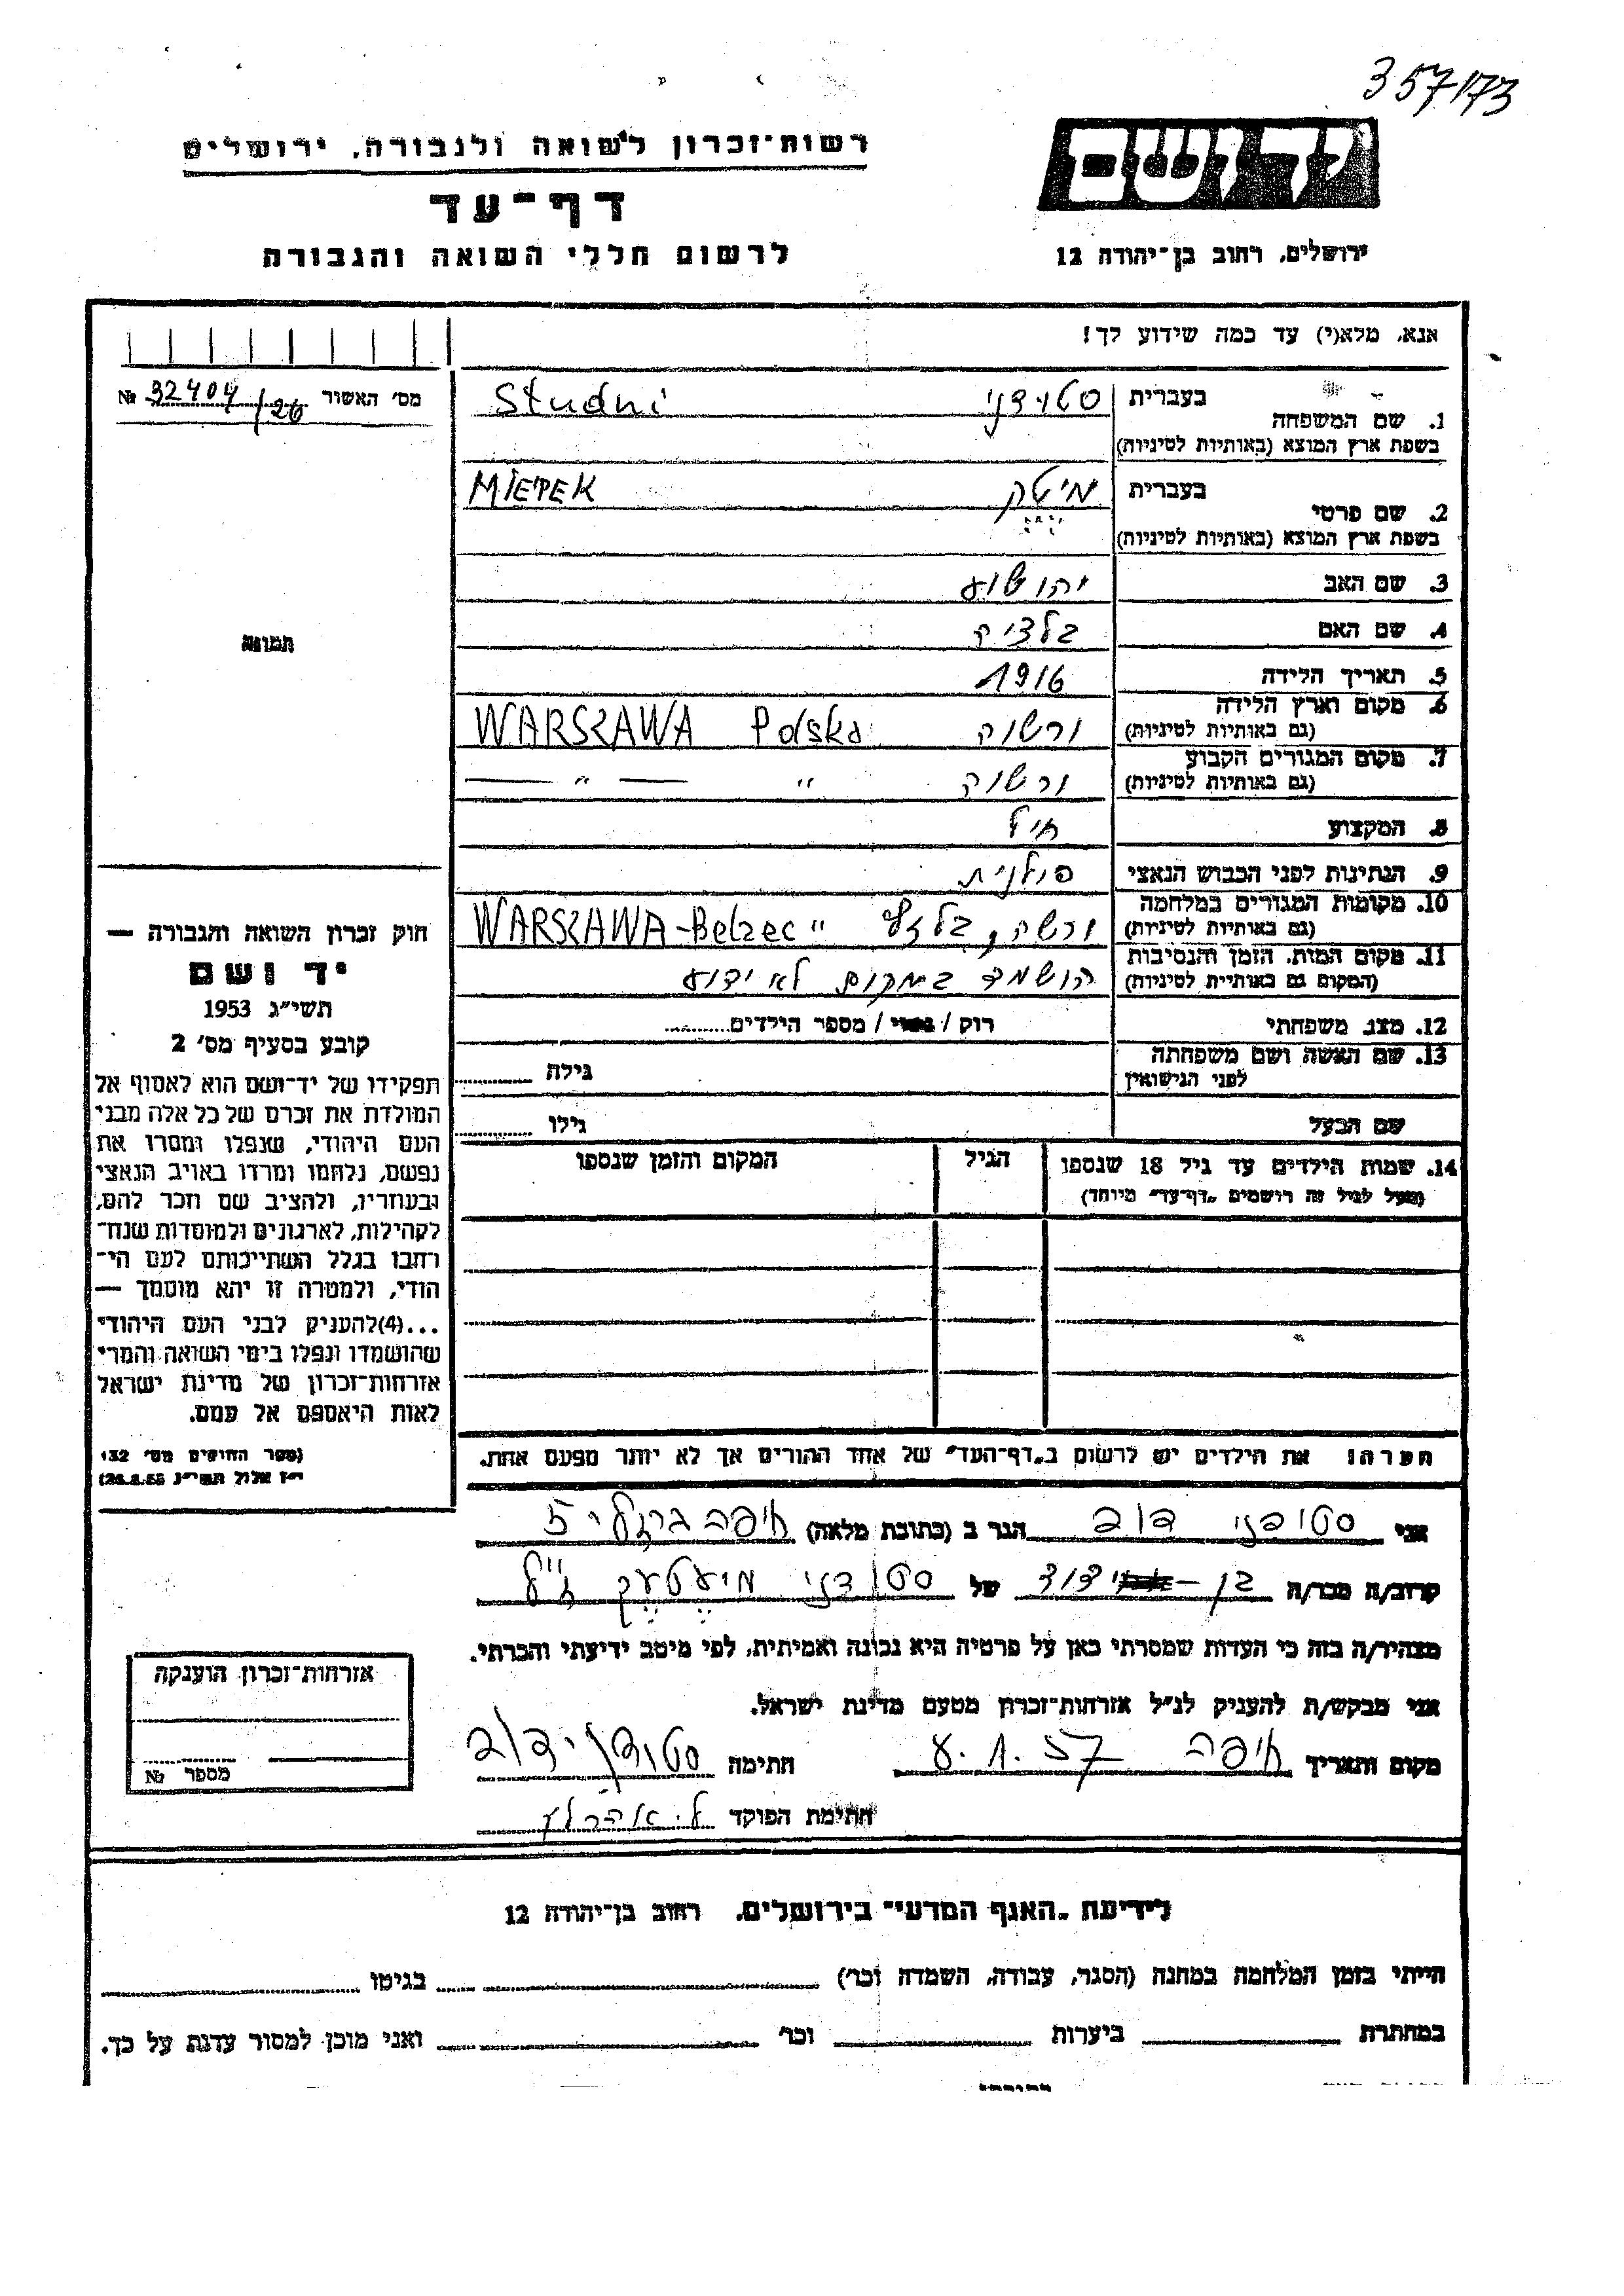 357173
רשות־זכרון לשואה ולגבורה, ירושלים
דף־עד
לרשום חללי השואה והגבורה
יד ושם
ירושלים, רחוב בן־יהודה 12
אנא, מלא(י) עד כמה שידוע לך!
מס׳ האשור № 32404/26
1. שם המשפחה בעברית סטודני Studni
בשפת ארץ המוצא (באותיות לטיניות)
2. שם פרטי בעברית מיטק MIETEK
בשפת ארץ המוצא (באותיות לטיניות)
3. שם האב יהושוע
4. שם האם
5. תאריך הלידה 1916
6. מקום וארץ הלידה ורשוה Polska WARSZAWA
(גם באותיות לטיניות)
7. מקום המגורים הקבוע ורשוה " — " —
(גם באותיות לטיניות)
8. המקצוע
9. הנתינות לפני הכבוש הנאצי פולנית
10. מקומות המגורים במלחמה ורשה, בלזץ WARSZAWA-Belzec "
(גם באותיות לטיניות)
11. מקום המות, הזמן והנסיבות הושמד במקום לא ידוע
(המקום גם באותיות לטיניות)
12. מצב משפחתי רוק / נשוי / מספר הילדים
13. שם האשה ושם משפחתה גילה
לפני הנישואין
שם הבעל גילו
14. שמות הילדים עד גיל 18 שנספו הגיל המקום והזמן שנספו
(מעל לגיל זה רושמים „דף־עד" מיוחד)
תמונה
חוק זכרון השואה והגבורה —
יד ושם
תשי״ג 1953
קובע בסעיף מס׳ 2
תפקידו של יד־ושם הוא לאסוף אל
המולדת את זכרם של כל אלה מבני
העם היהודי, שנפלו ומסרו את
נפשם, נלחמו ומרדו באויב הנאצי
ובעוזריו, ולהציב שם וזכר להם,
לקהילות, לארגונים ולמוסדות שנח־
רבו בגלל השתייכותם לעם הי־
הודי, ולמטרה זו יהא מוסמך —
...(4)להעניק לבני העם היהודי
שהושמדו ונפלו בימי השואה והמרי
אזרחות־זכרון של מדינת ישראל
לאות היאספם אל עמם.
(ספר החוקים מס׳ 132
י״ז אלול תשי״ג 28.8.53)
הערה: את הילדים יש לרשום ב„דף־העד" של אחד ההורים אך לא יותר מפעם אחת.
אני סטודני דוב הגר ב (כתובת מלאה) חיפה 5
קרוב/ה מכר/ה בן - דוד של סטודני מיעטעק ז״ל
מצהיר/ה בזה כי העדות שמסרתי כאן על פרטיה היא נכונה ואמיתית, לפי מיטב ידיעתי והכרתי.
אני מבקש/ת להעניק לנ״ל אזרחות־זכרון מטעם מדינת ישראל.
מקום ותאריך חיפה 8.1.57 חתימה סטודני דוב
חתימת הפוקד
אזרחות־זכרון הוענקה
מספר №
לידיעת „האגף המדעי" בירושלים, רחוב בן־יהודה 12
הייתי בזמן המלחמה במחנה (הסגר, עבודה, השמדה וכר׳) בגיטו
במחתרת ביערות וכר׳ ואני מוכן למסור עדות על כך.